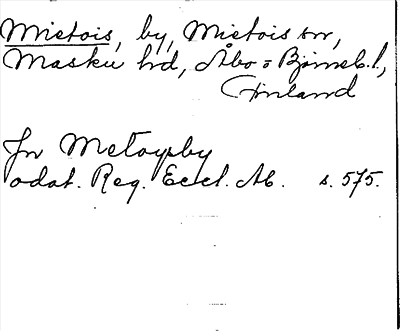 Mietois, by, Mietois sn,
Masku hd, Åbo = Björneb. l.,
Finland
Jn Metoysby
odat. Reg. Eccl. Ab. s. 575.